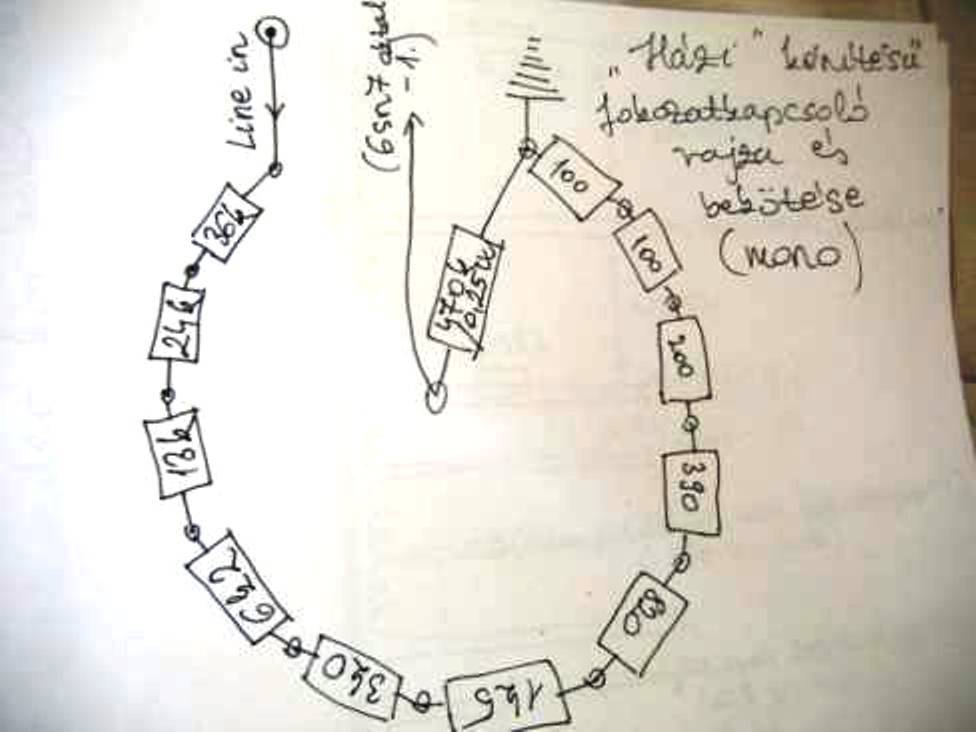 Line in
(6sn7 oktal
-1.)
„Házi" készítésű
fokozatkapcsoló
rajza és
bekötése
(mono)
36k
24k
13k
6k2
3k0
1k5
820
390
200
100
100
470k
0,25W